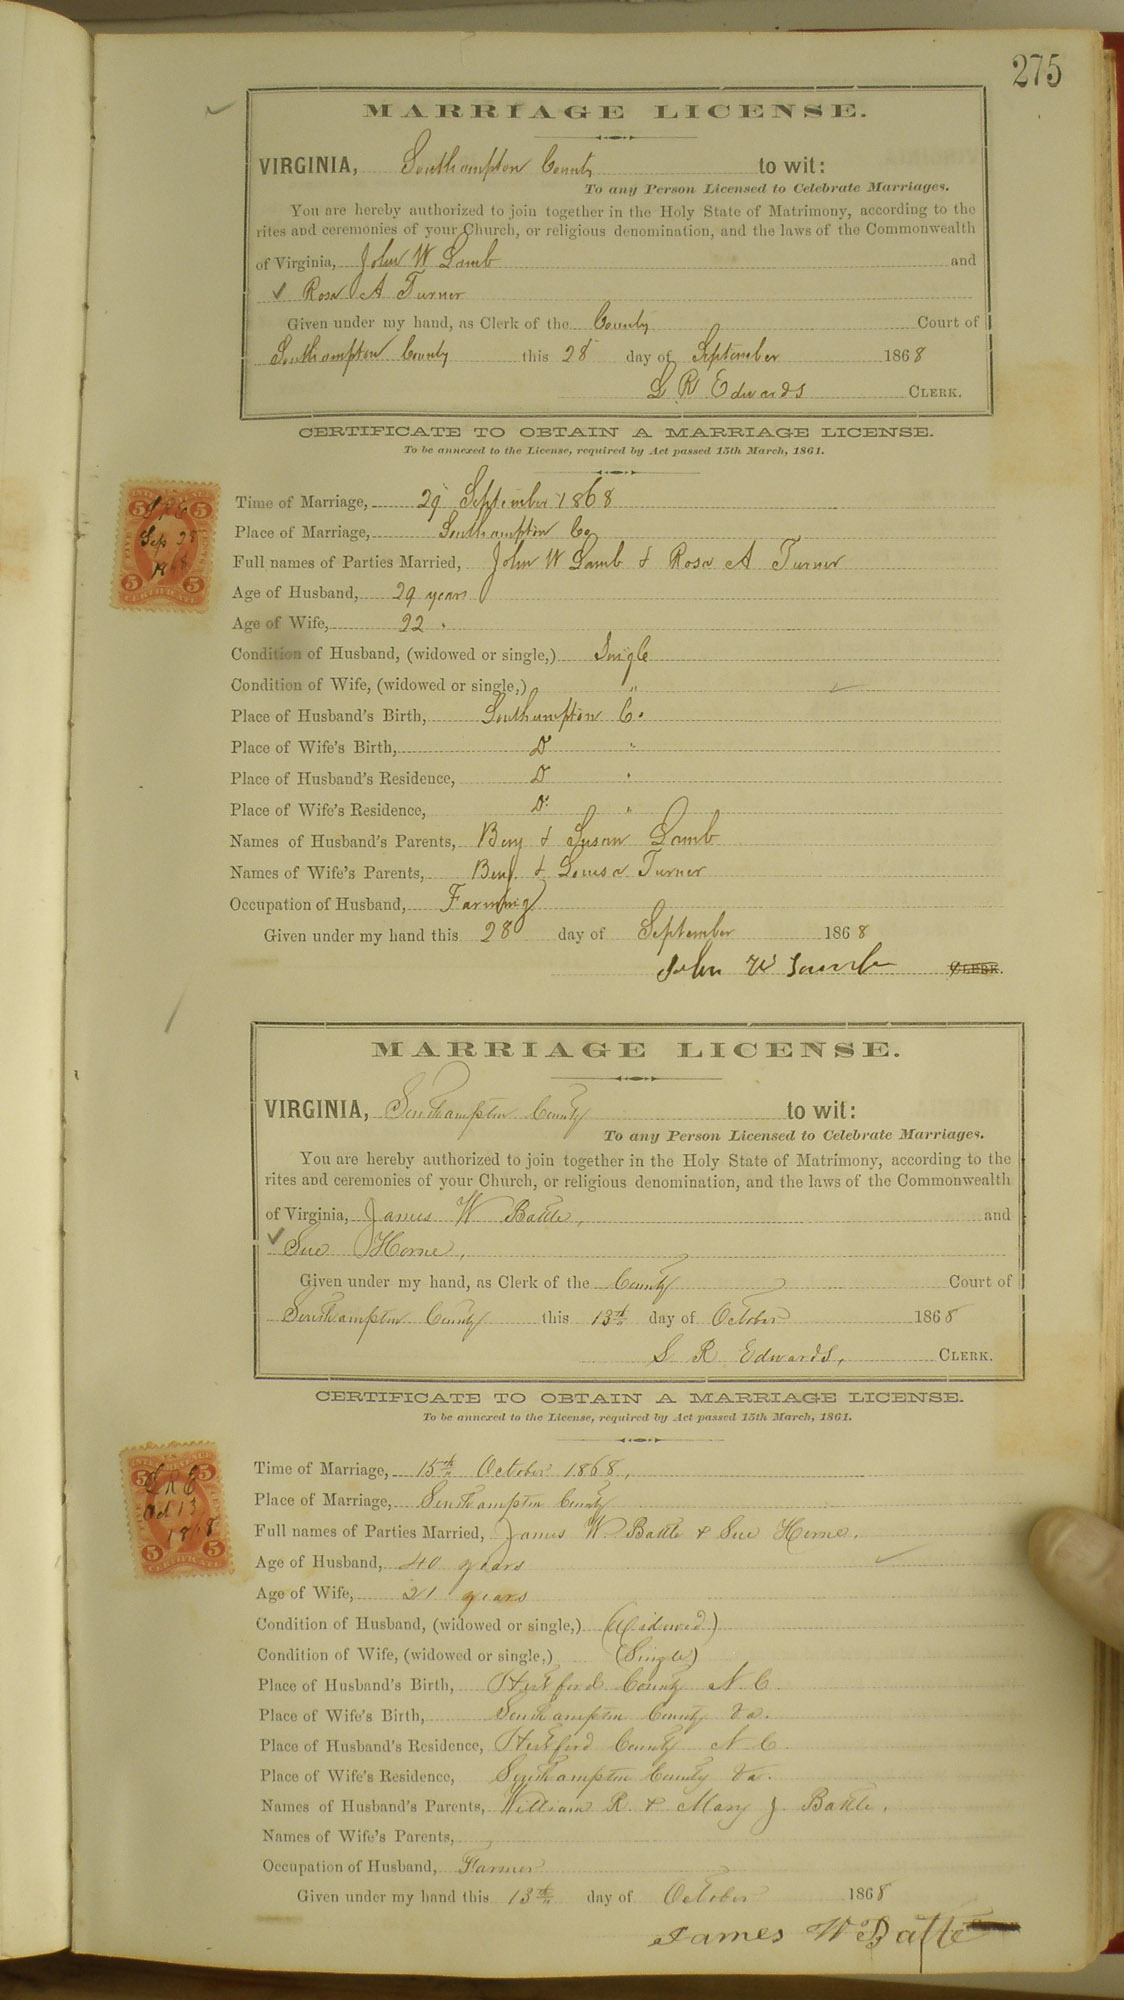 275
MARRIAGE LICENSE.
VIRGINIA, Southampton County to wit:
To any Person Licensed to Celebrate Marriages.
You are hereby authorized to join together in the Holy State of Matrimony, according to the
rites and ceremonies of your Church, or religious denomination, and the laws of the Commonwealth
of Virginia, John W Lamb and
Rosa A Turner
Given under my hand, as Clerk of the County Court of
Southampton County this 28 day of September 1868
L R Edwards CLERK.
CERTIFICATE TO OBTAIN A MARRIAGE LICENSE.
To be annexed to the License, required by Act passed 15th March, 1861.
Time of Marriage, 29 September 1868
Place of Marriage, Southampton Co
Full names of Parties Married, John W Lamb & Rosa A Turner
Age of Husband, 29 years
Age of Wife, 22 "
Condition of Husband, (widowed or single,) Single
Condition of Wife, (widowed or single,) "
Place of Husband's Birth, Southampton Co.
Place of Wife's Birth, Do "
Place of Husband's Residence, Do "
Place of Wife's Residence, Do "
Names of Husband's Parents, Benj & Susan Lamb
Names of Wife's Parents, Benj. & Louisa Turner
Occupation of Husband, Farming
Given under my hand this 28 day of September 1868
John W Lamb CLERK.
5 5
LRE
Sep 28
1868
5 5
CERTIFICATE
MARRIAGE LICENSE.
VIRGINIA, Southampton County to wit:
To any Person Licensed to Celebrate Marriages.
You are hereby authorized to join together in the Holy State of Matrimony, according to the
rites and ceremonies of your Church, or religious denomination, and the laws of the Commonwealth
of Virginia, James W Battle, and
Sue Horne,
Given under my hand, as Clerk of the County Court of
Southampton County this 13th day of October 1868
L R Edwards, CLERK.
CERTIFICATE TO OBTAIN A MARRIAGE LICENSE.
To be annexed to the License, required by Act passed 15th March, 1861.
Time of Marriage, 15th October 1868,
Place of Marriage, Southampton County
Full names of Parties Married, James W. Battle & Sue Horne.
Age of Husband, 40 years
Age of Wife, 21 years
Condition of Husband, (widowed or single,) (Widowed)
Condition of Wife, (widowed or single,) (Single)
Place of Husband's Birth, Hertford County N C.
Place of Wife's Birth, Southampton County Va.
Place of Husband's Residence, Hertford County N C.
Place of Wife's Residence, Southampton County Va.
Names of Husband's Parents, William R. & Mary J. Battle,
Names of Wife's Parents,
Occupation of Husband, Farmer
Given under my hand this 13th day of October 1868
James W Battle
5 5
LRE
Oct 13
1868
5 5
CERTIFICATE